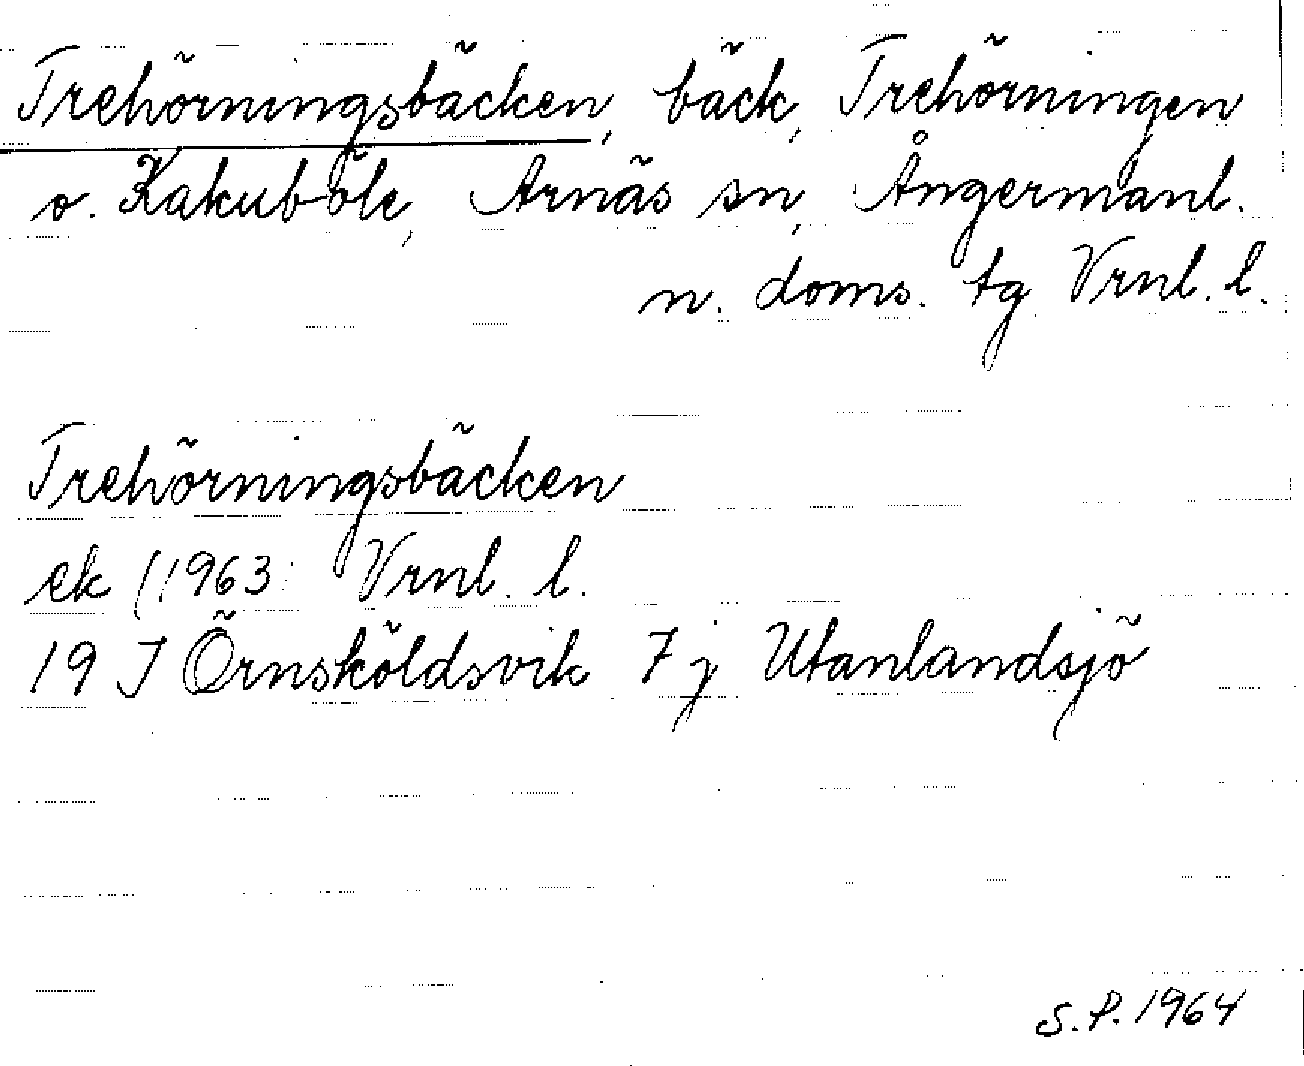 Trehörningsbäcken, bäck, Trehörningen
o. Kakuböle, Arnäs sn, Ångermanl.
n. doms. tg Vrnl. l.
Trehörningsbäcken
ek (1963) Vrnl. l.
19 J Örnsköldsvik 7 j Utanlandsjö
S.P. 1964